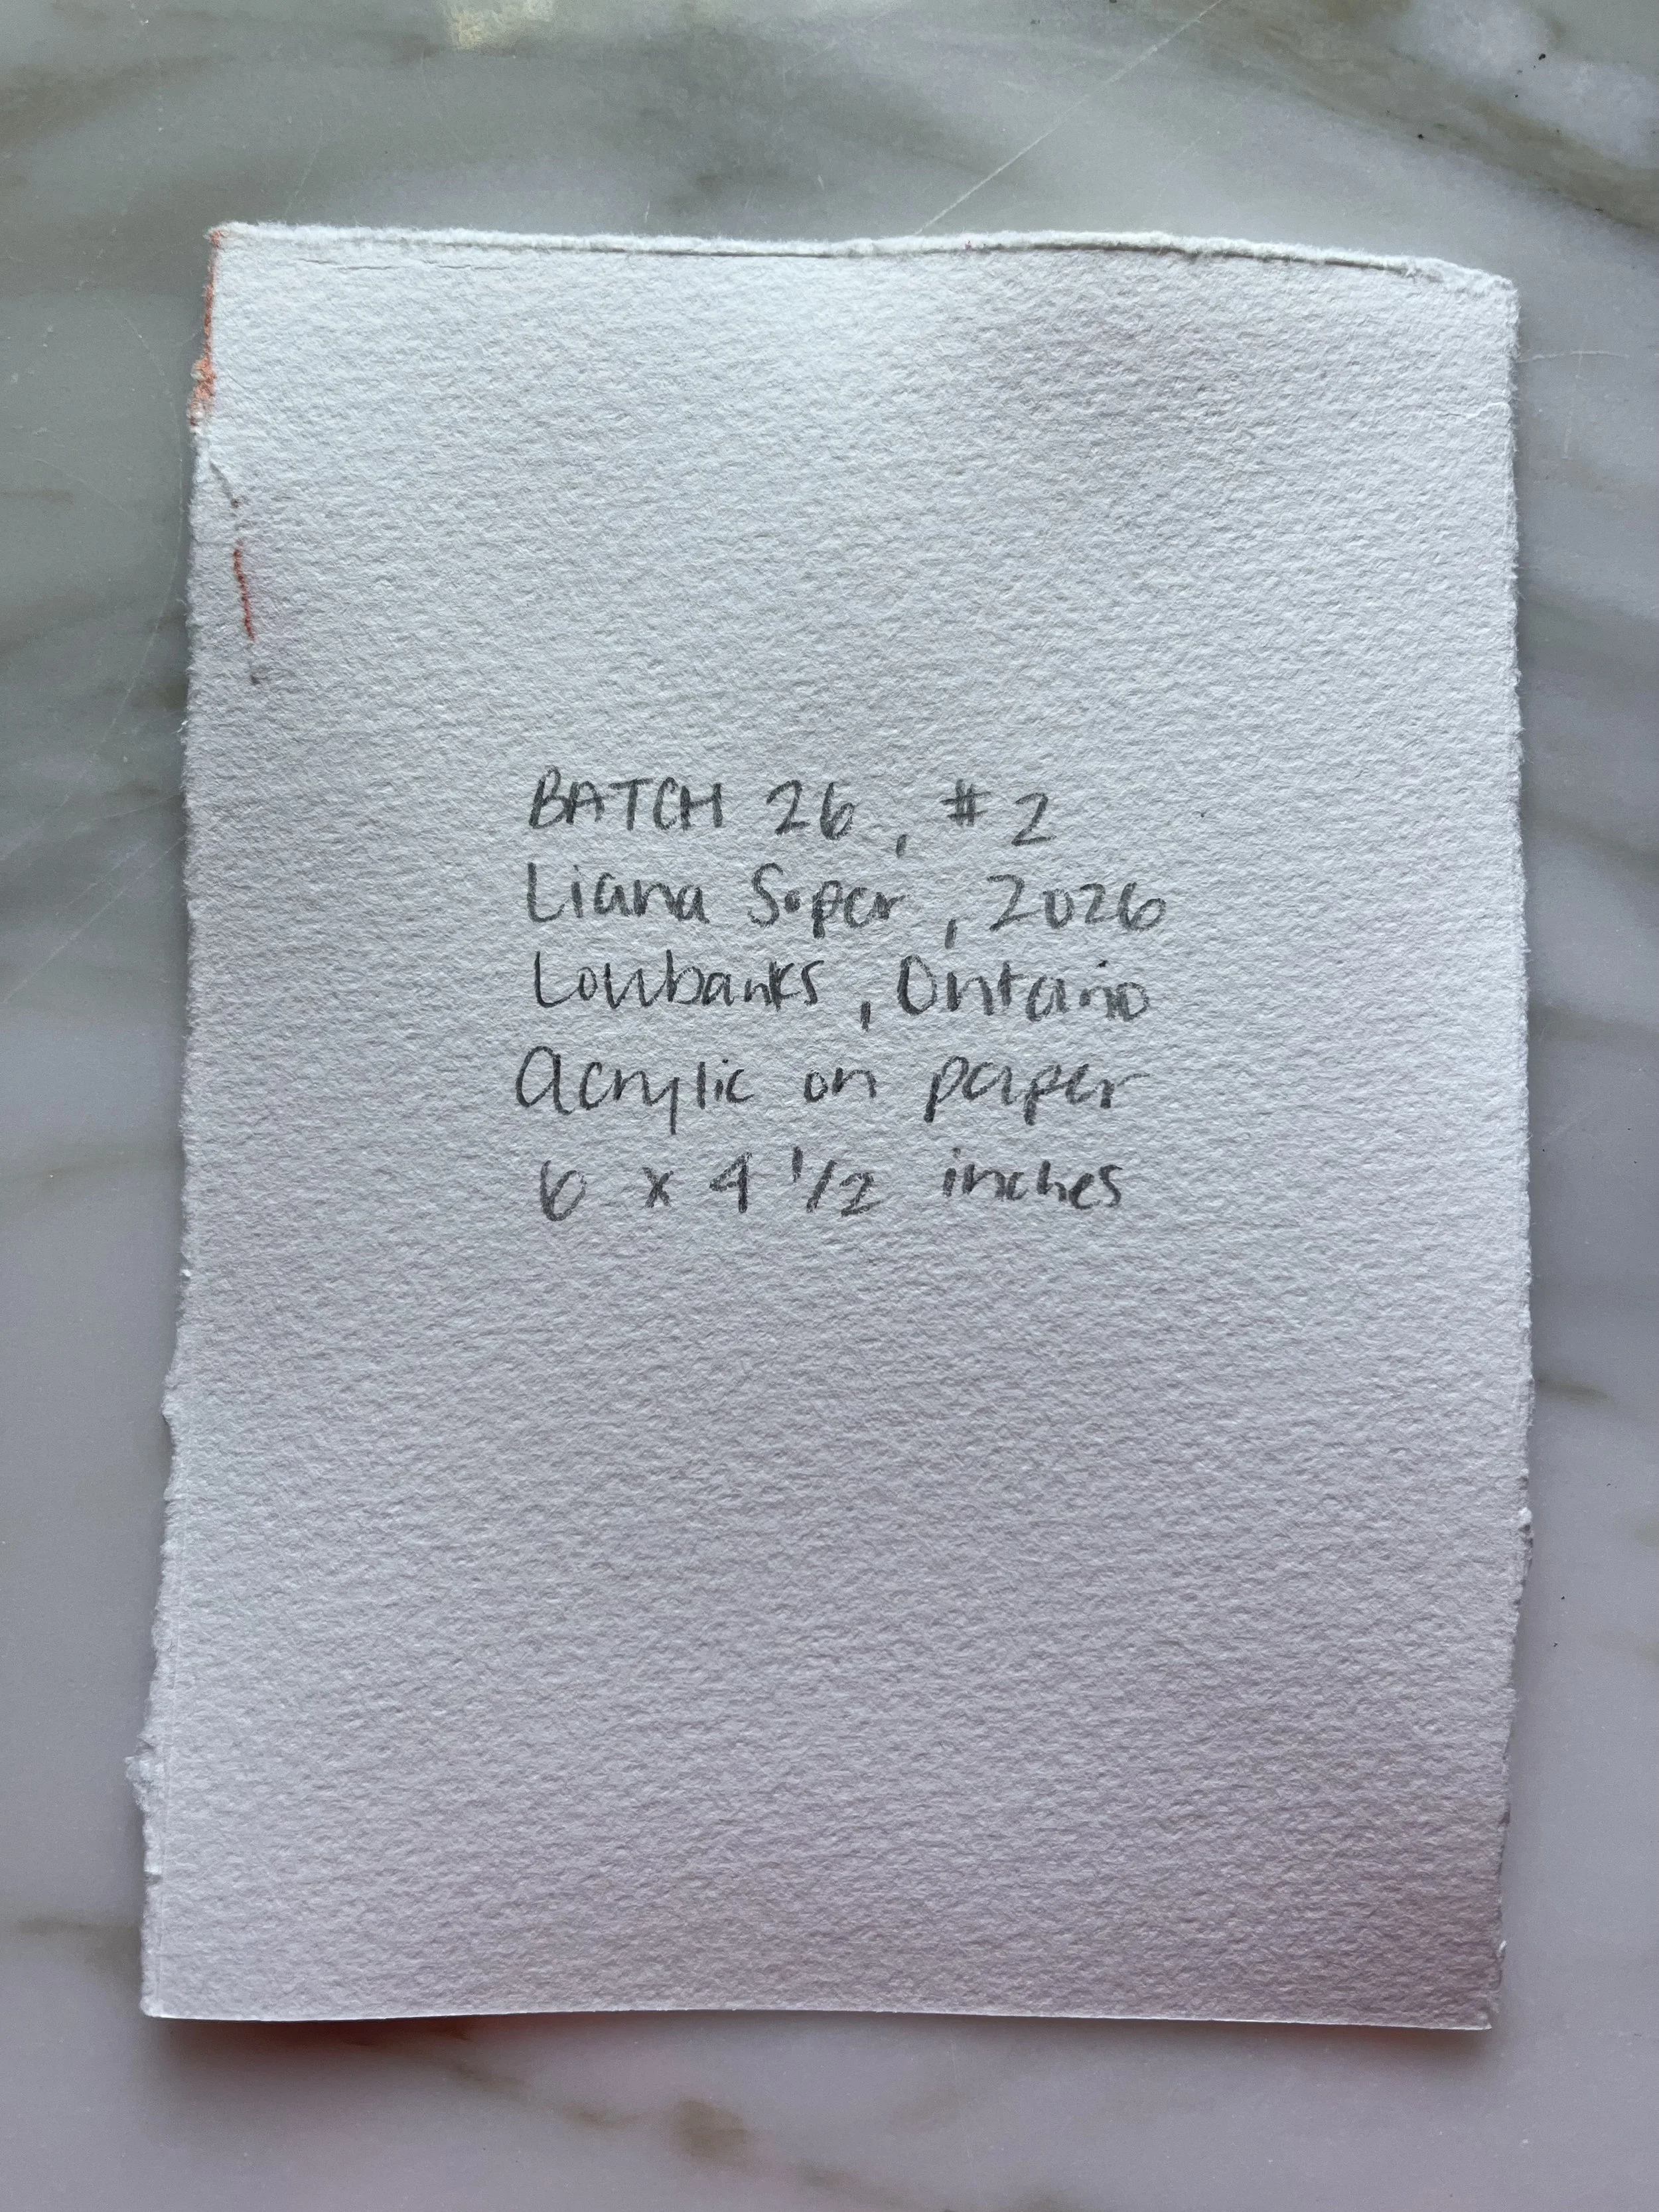 BATCH 26, #2
Liana Soper, 2026
Lowbanks, Ontario
Acrylic on paper
6 x 4 1/2 inches